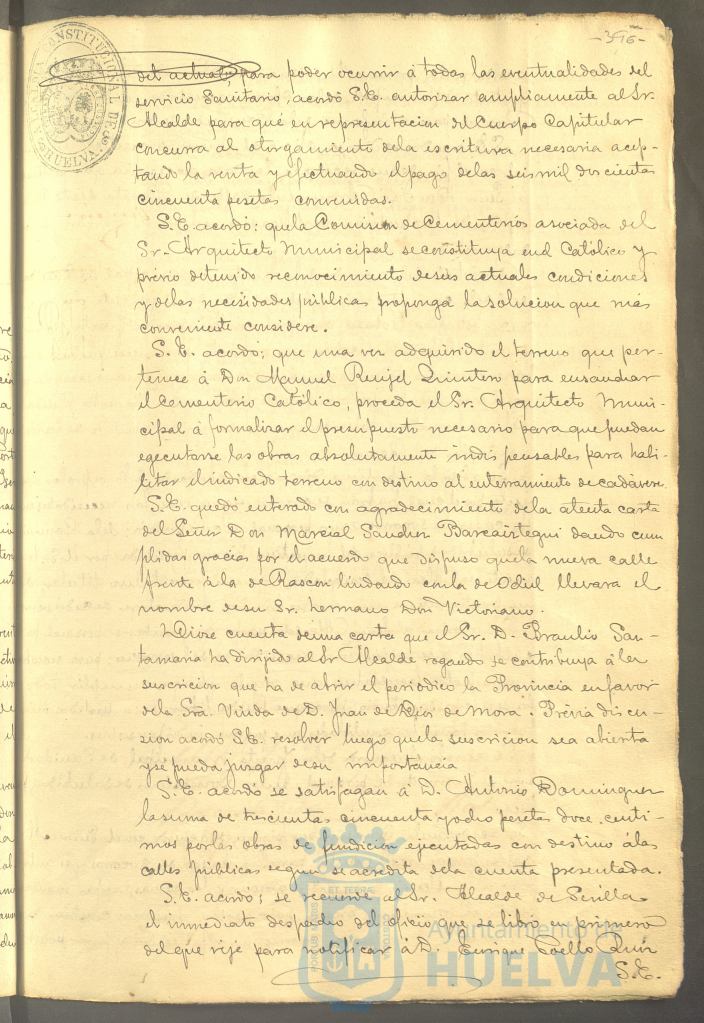 -396-
ALCALDIA CONSTITUCIONAL DE HUELVA
del actual, para poder ocurrir á todas las eventualidades del
servicio Sanitario, acordó S.E. autorizar ampliamente al Sr.
Alcalde para qué en representacion del Cuerpo Capitular
concurra al otorgamiento dela escritura necesaria acep-
tando la venta y efectuando el pago delas seis mil doscientas
cincuenta pesetas convenidas.
S.E. acordó: quela Comision de Cementerios asociada del
Sr. Arquitecto Municipal se constituya en el Católico y
prévio detenido reconocimiento desus actuales condiciones
y delas necesidades públicas proponga la solucion que más
conveniente considere.
S. E. acordó: que una vez adquirido el terreno que per-
tenece á Don Manuel Rengel Quintero para ensanchar
el Cementerio Católico, proceda el Sr. Arquitecto Muni-
cipal á formalizar el presupuesto necesario para que puedan
egecutarse las obras absolutamente indispensables para habi-
litar el indicado terreno con destino al enterramiento de cadáveres.
S.E. quedó enterado con agradecimiento dela atenta carta
del Señor Don Marcial Sanchez Barcaiztegui dando cum
plidas gracias por el acuerdo que dispuso quela nueva calle
frente á la de Rascon lindando conla de Odiel llevara el
nombre desu Sr. hermano Don Victoriano.
Diose cuenta deuna carta que el Sr. D. Braulio San-
tamaria ha dirijido al Sr Alcalde rogando se contribuya á la
suscricion que ha de abrir el periodico la Provincia en favor
dela Sra. Viuda de D. Juan de Dios de Mora. Prévia discu-
sion acordó S.E. resolver luego quela suscricion sea abierta
y se pueda juzgar desu importancia
S.E. acordó se satisfagan á D. Antonio Dominguez
la suma de trescientas cincuenta y ocho pesetas doce centi-
mos porlas obras de fundicion ejecutadas con destino álas
calles públicas segun se acredita dela cuenta presentada.
S.E. acordó: se recuerde al Sr. Alcalde de Sevilla
el inmediato despacho del oficio que se libró en primero
del que rije para notificar á D. Enrique Coello Ruiz
S.E.
Ayuntamiento de
HUELVA